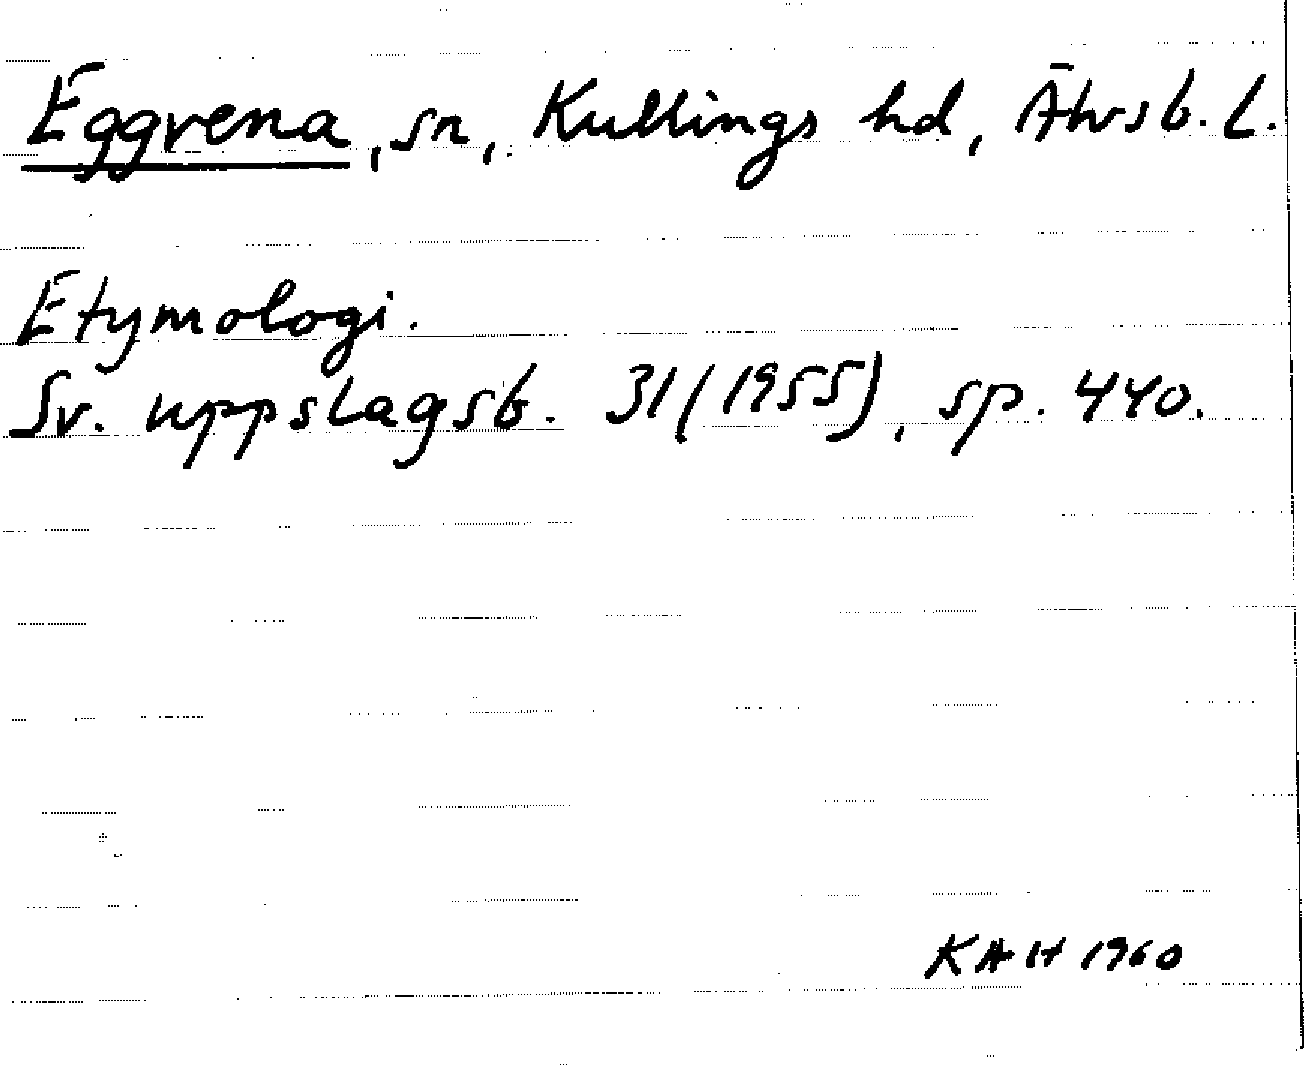 Eggvena, sn, Kullings hd, Älvsb. l.
Etymologi.
Sv. uppslagsb. 31 (1955), sp. 440.
KAH 1960